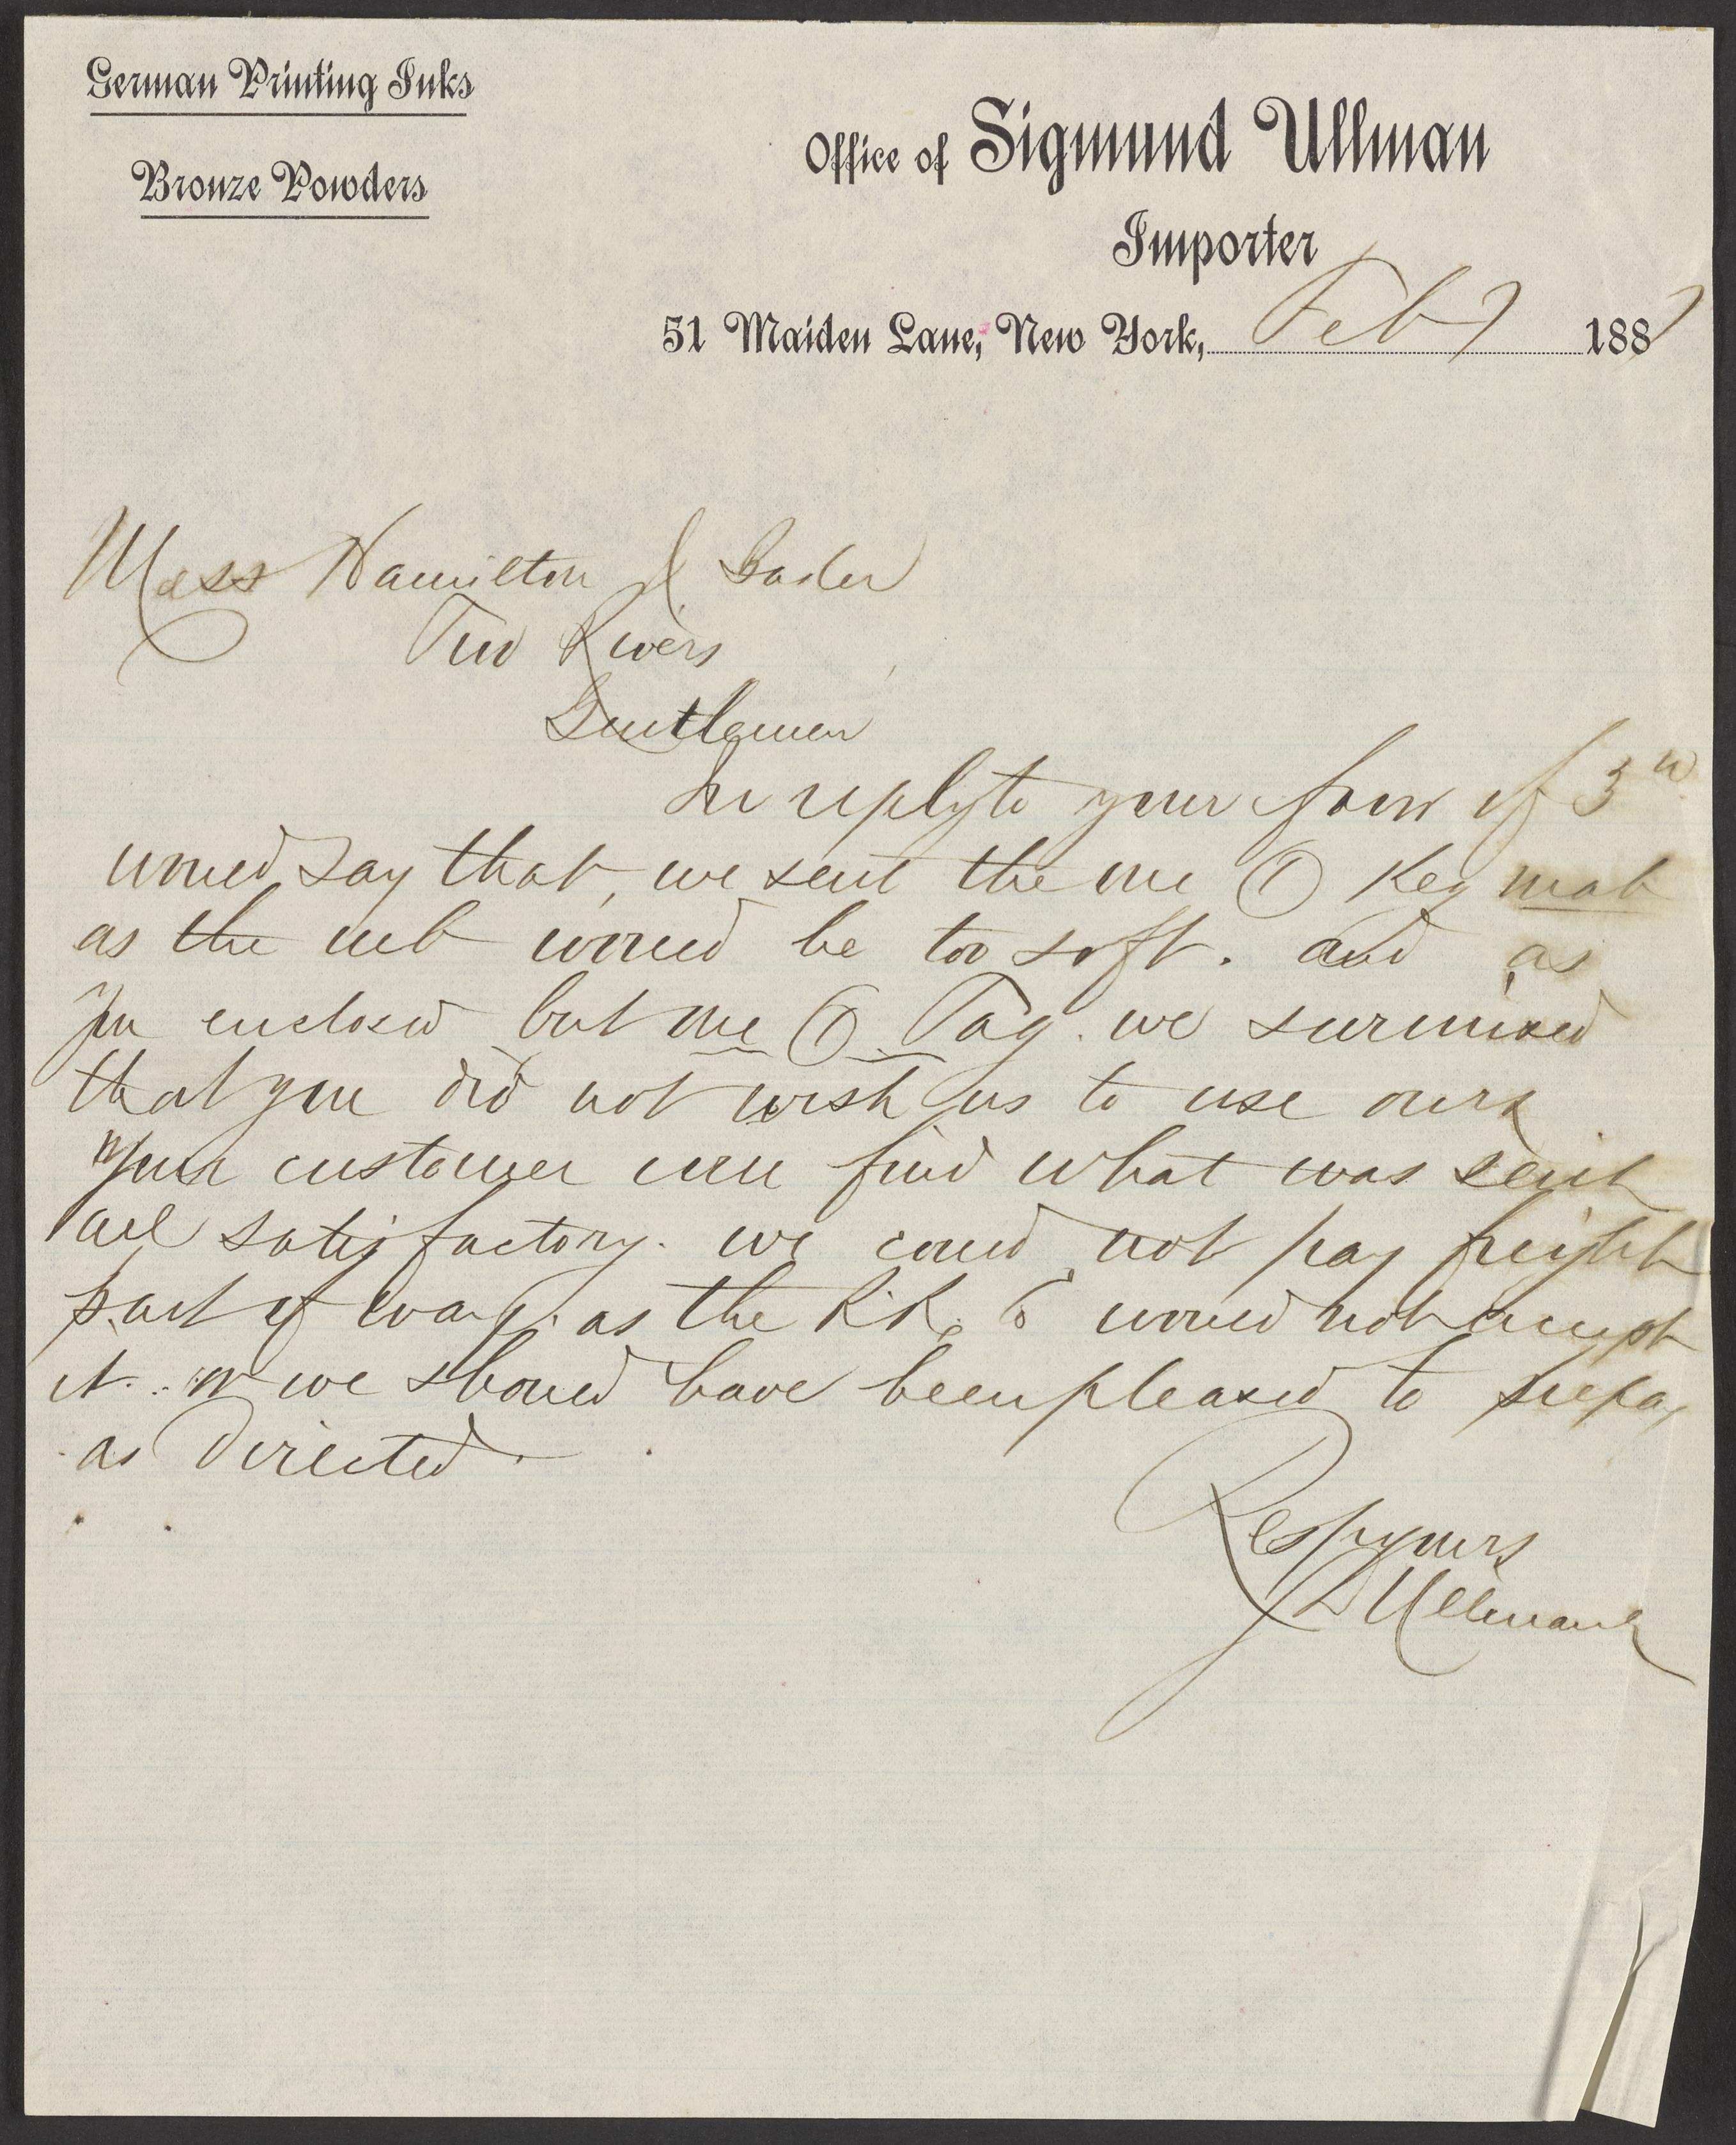 German Printing Inks
Bronze Powders
Office of Sigmund Ullman
Importer
51 Maiden Lane, New York, Feb 7 1887
Mess Hamilton &
Two Rivers
Gentlemen
In reply to your favor of 3rd
would say that, we sent the one (1) Keg
as the would be too soft. and as
you enclosed but one (1) Tag. we surmised
that you did not wish us to use ours
Your customer will find what was sent
all satisfactory. we could not pay freight
part of way. as the R.R. Co would not accept
it. or we should have been pleased to prepay
as directed.
Resp yours
S Ullman